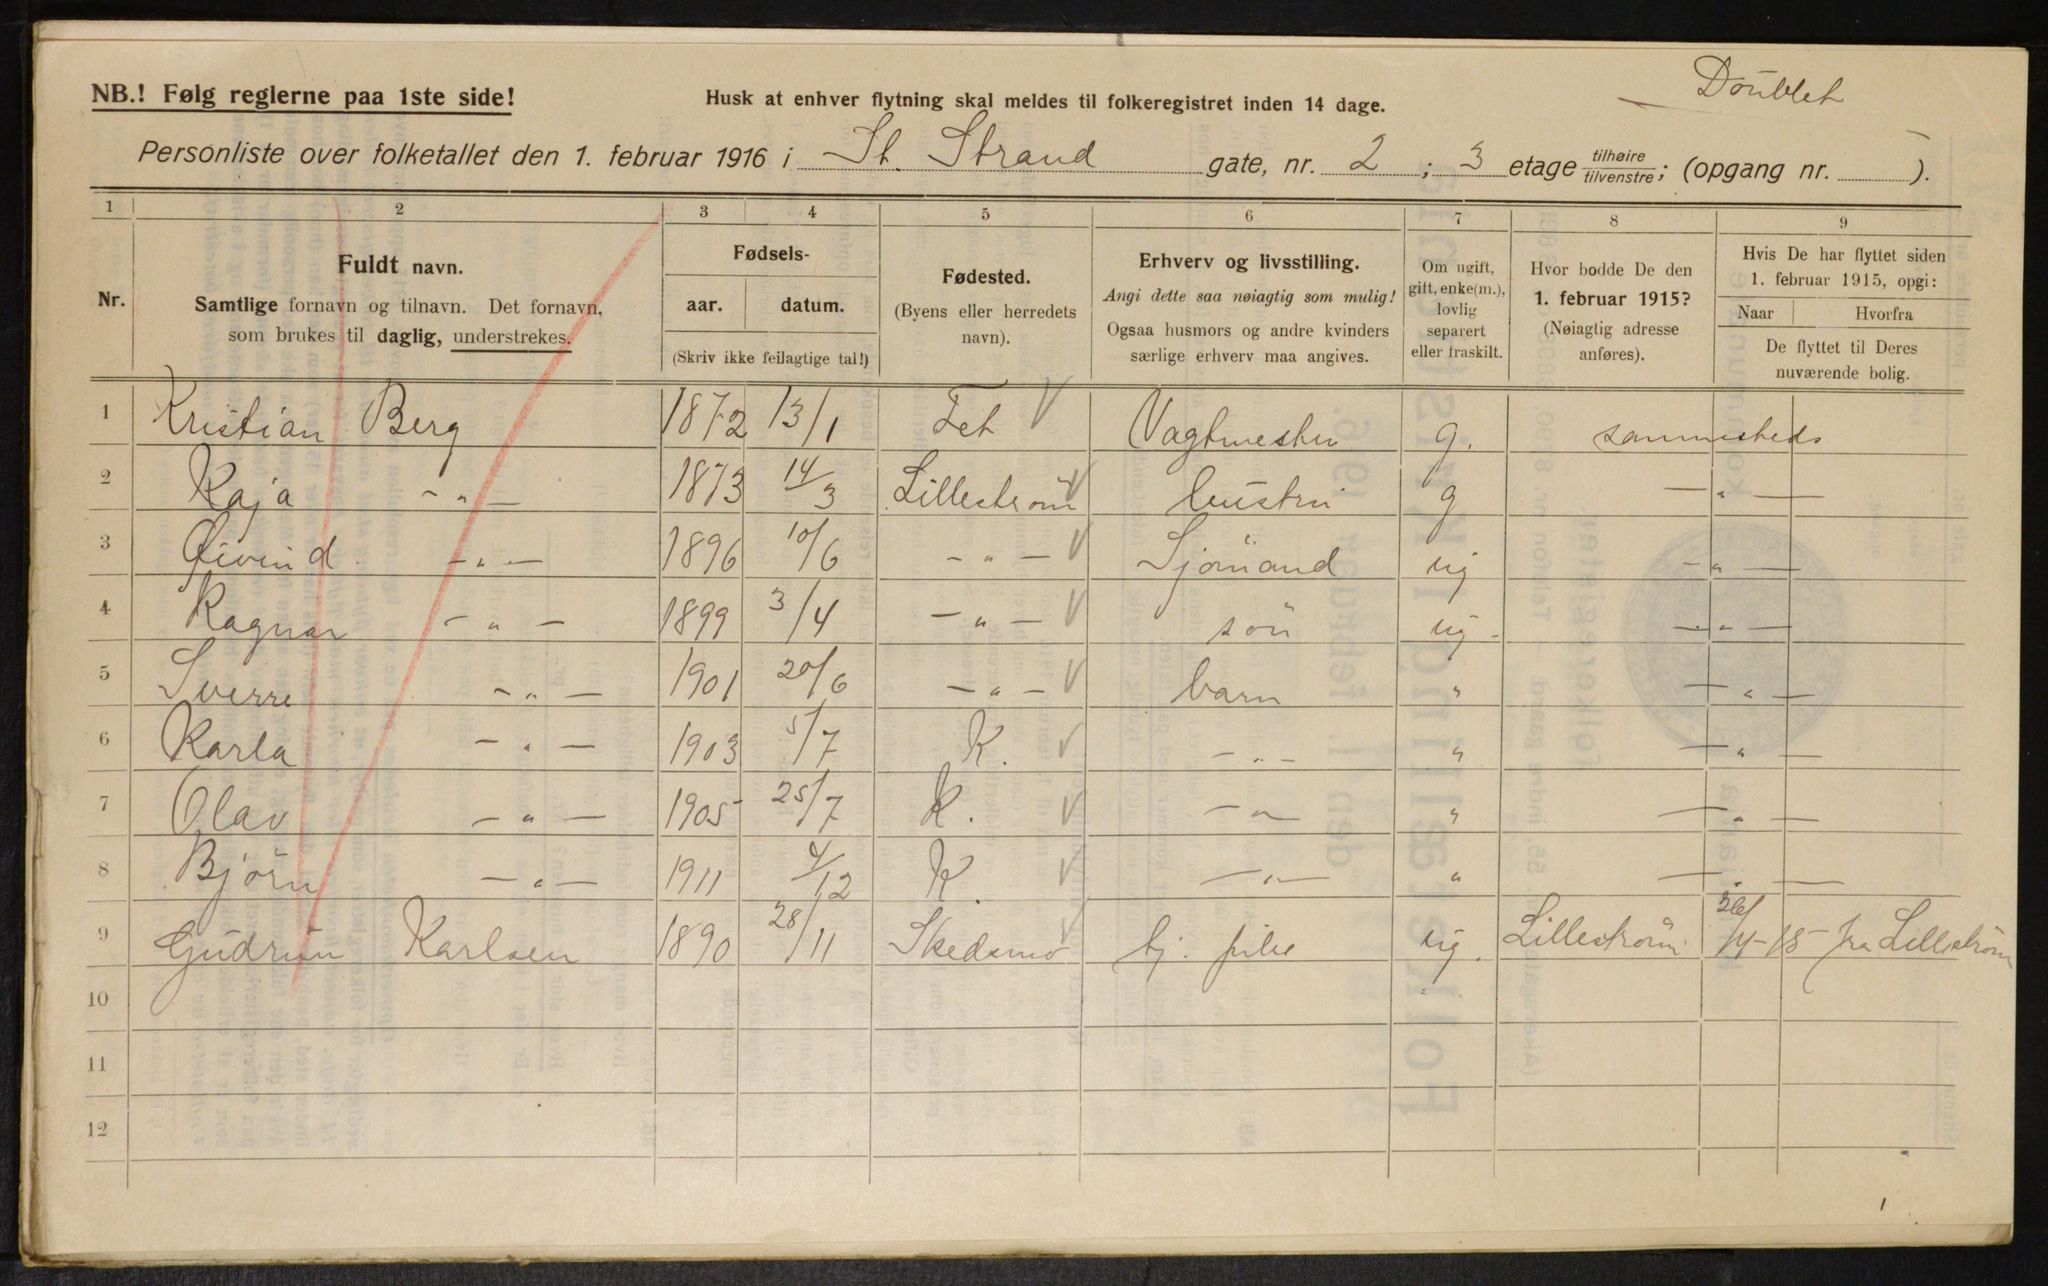 Doublet
NB.! Følg reglerne paa 1ste side!
Husk at enhver flytning skal meldes til folkeregistret inden 14 dage.
Personliste over folketallet den 1. februar 1916 i St. Strand gate, nr. 2 ; 3 etage tilhøire tilvenstre ; (opgang nr. ).
1 2 3 4 5 6 7 8 9
Nr.
Fuldt navn.
Samtlige fornavn og tilnavn. Det fornavn,
som brukes til daglig, understrekes.
Fødsels-
aar. datum.
(Skriv ikke feilagtige tal!)
Fødested.
(Byens eller herredets
navn).
Erhverv og livsstilling.
Angi dette saa nøiagtig som mulig!
Ogsaa husmors og andre kvinders
særlige erhverv maa angives.
Om ugift,
gift, enke(m.),
lovlig
separert
eller fraskilt.
Hvor bodde De den
1. februar 1915?
(Nøiagtig adresse
anføres).
Hvis De har flyttet siden
1. februar 1915, opgi:
Naar Hvorfra
De flyttet til Deres
nuværende bolig.
1 Kristian Berg 1872 13/1 Fet Vagtmester g. sammesteds
2 Kaja — „ — 1873 14/3 Lilleström hustru g — „ —
3 Øivind — „ — 1896 10/6 — „ — Sjömand ug — „ —
4 Ragnar — „ — 1899 3/4 — „ — sön ug. — „ —
5 Sverre — „ — 1901 20/6 — „ — barn „ — „ —
6 Karla — „ — 1903 5/7 K. — „ — „ — „ —
7 Olav — „ — 1905 25/7 K. — „ — „ — „ —
8 Björn — „ — 1911 4/12 K. — „ — „ — „ —
9 Gudrun Karlsen 1890 28/11 Skedsmo hj. pike ug. Lilleström /4-15 fra Lilleström
10
11
12
1